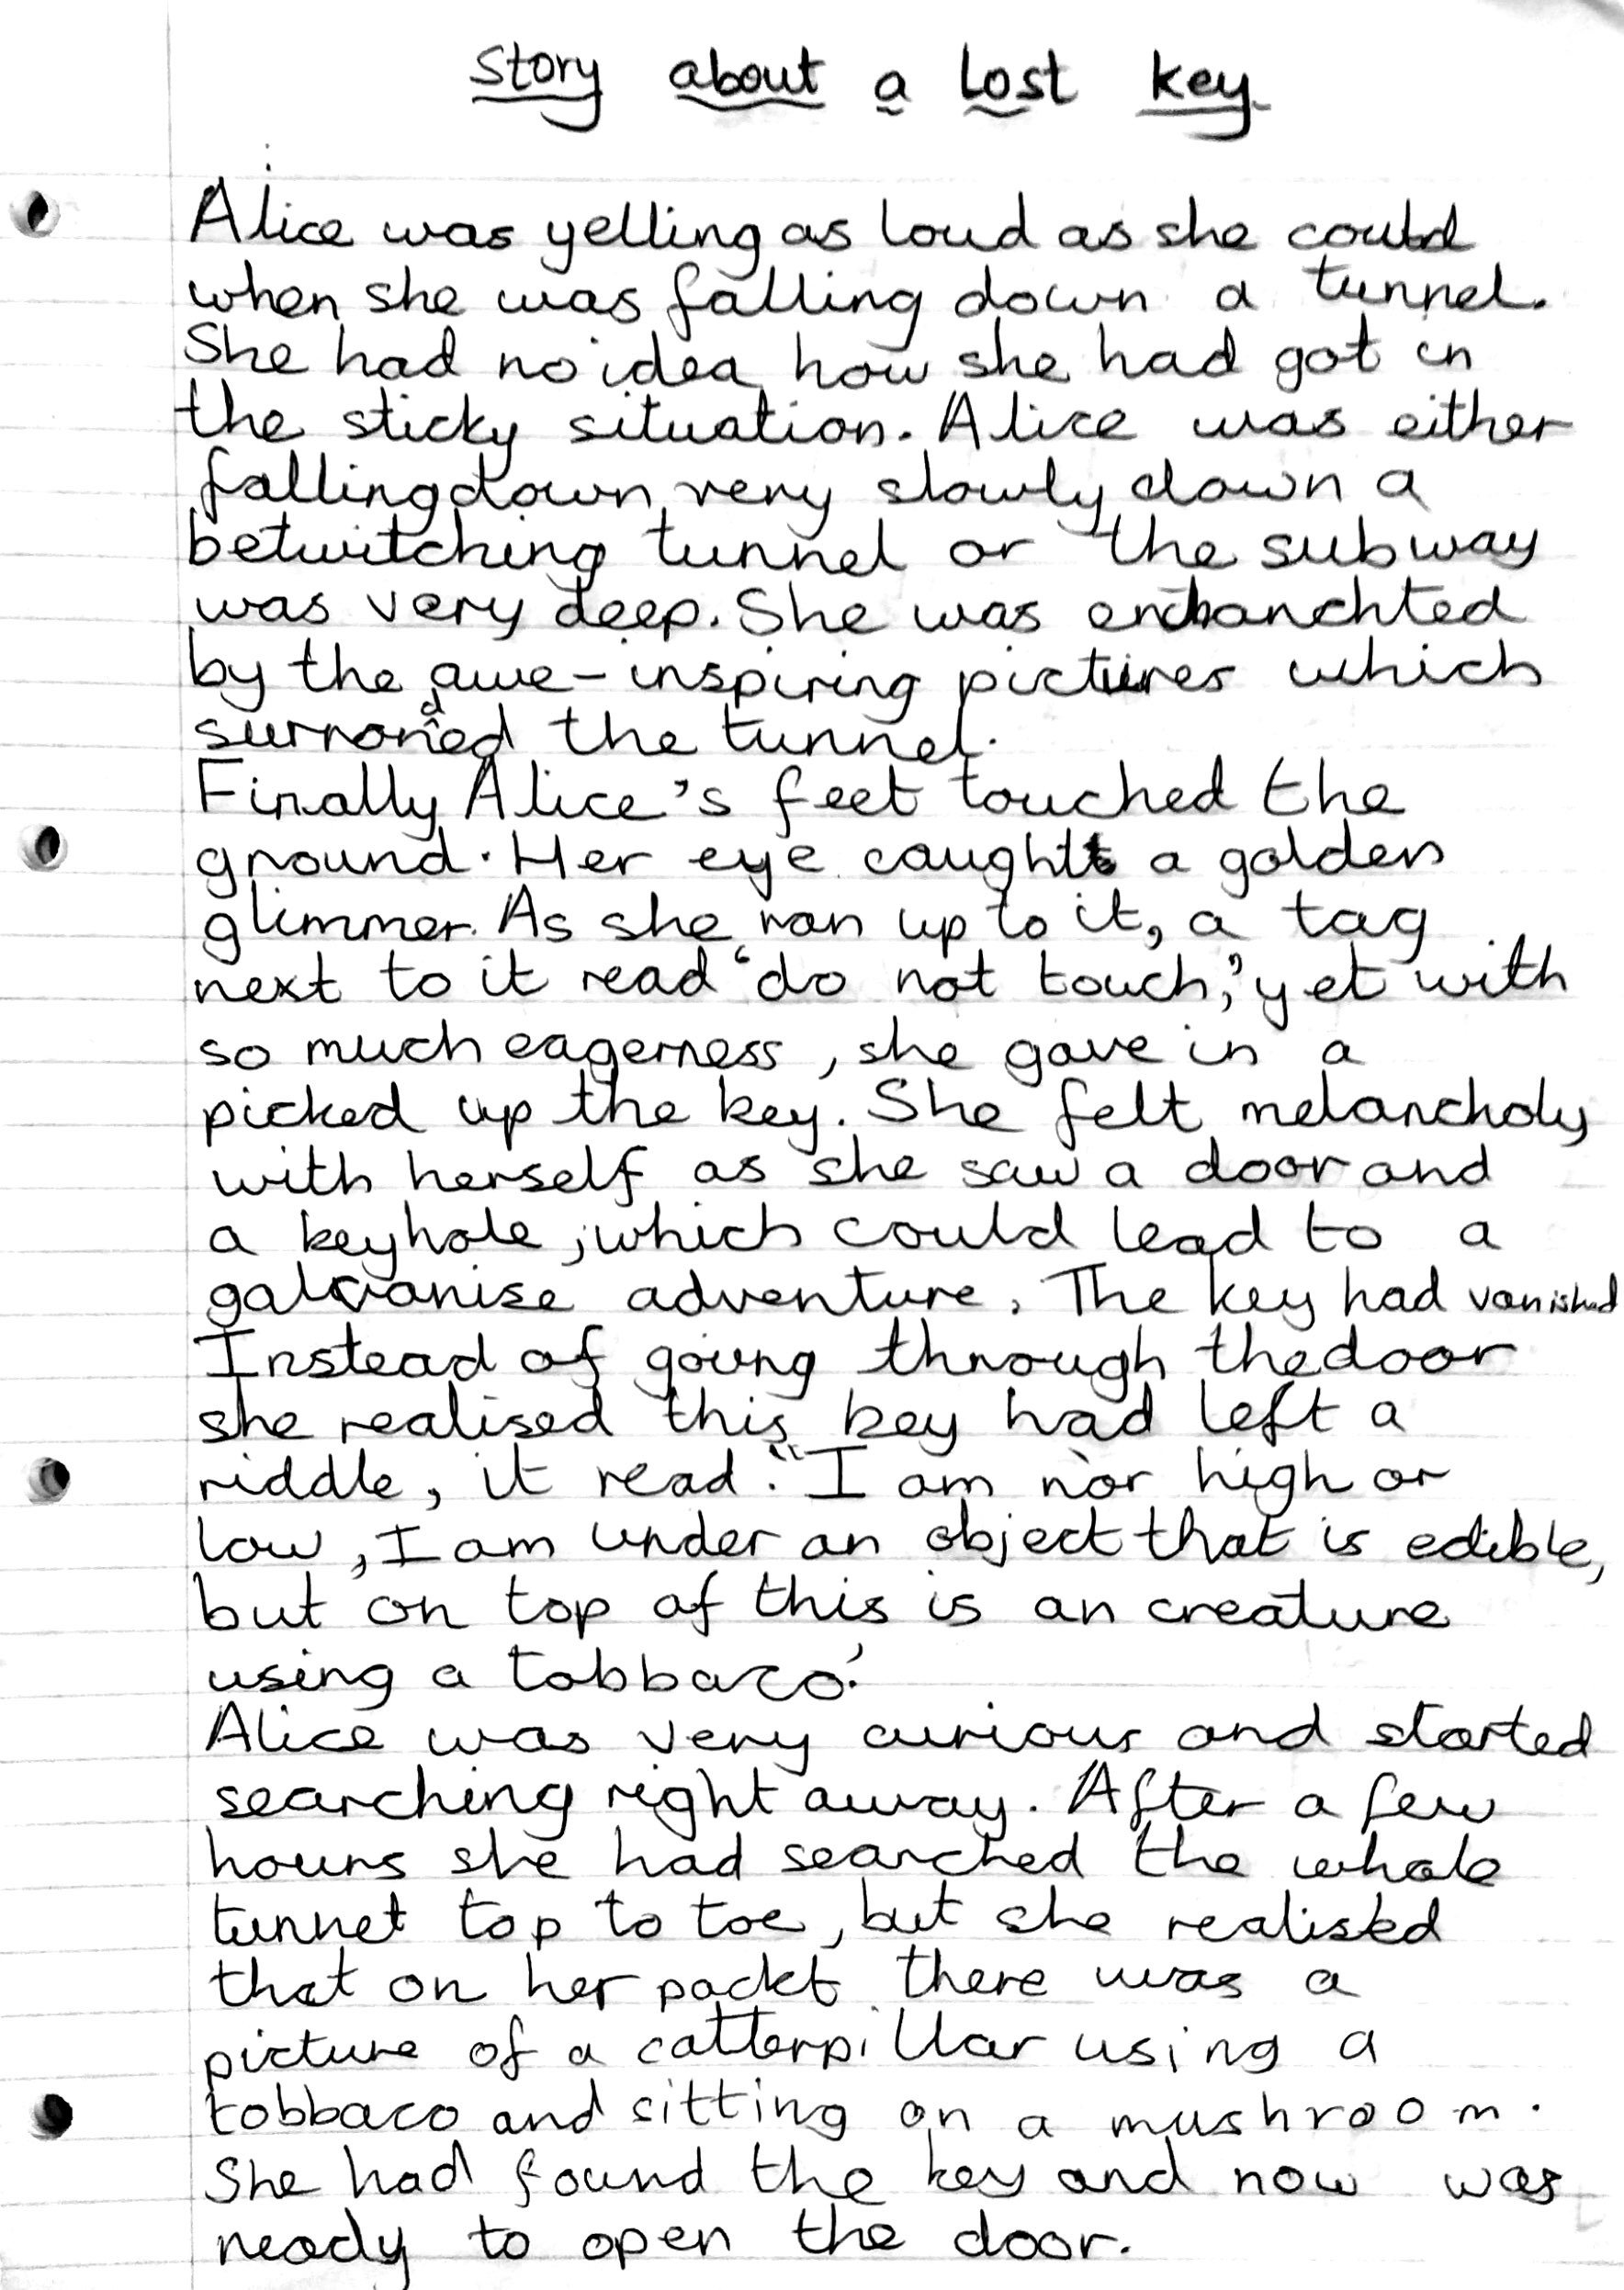 Story about a Lost key
Alice was yelling as loud as she could
when she was falling down a tunnel.
She had no idea how she had got in
the sticky situation. Alice was either
falling down very slowly down a
betwitching tunnel or the subway
was very deep. She was enchanchted
by the awe-inspiring pictures which
surronded the tunnel.
Finally Alice's feet touched the
ground. Her eye caught a golden
glimmer. As she ran up to it, a tag
next to it read 'do not touch,' yet with
so much eagerness, she gave in a
picked up the key. She felt melancholy
with herself as she saw a door and
a keyhole, which could lead to a
galvanise adventure. The key had vanished
Instead of going through the door
she realised this key had left a
riddle, it read. "I am nor high or
low, I am under an object that is edible,
but on top of this is an creature
using a tobbaco.'
Alice was very curious and started
searching right away. After a few
hours she had searched the whole
tunnel top to toe, but she realised
that on her pockt there was a
picture of a catterpillar using a
tobbaco and sitting on a mushroom.
She had found the key and now was
ready to open the door.